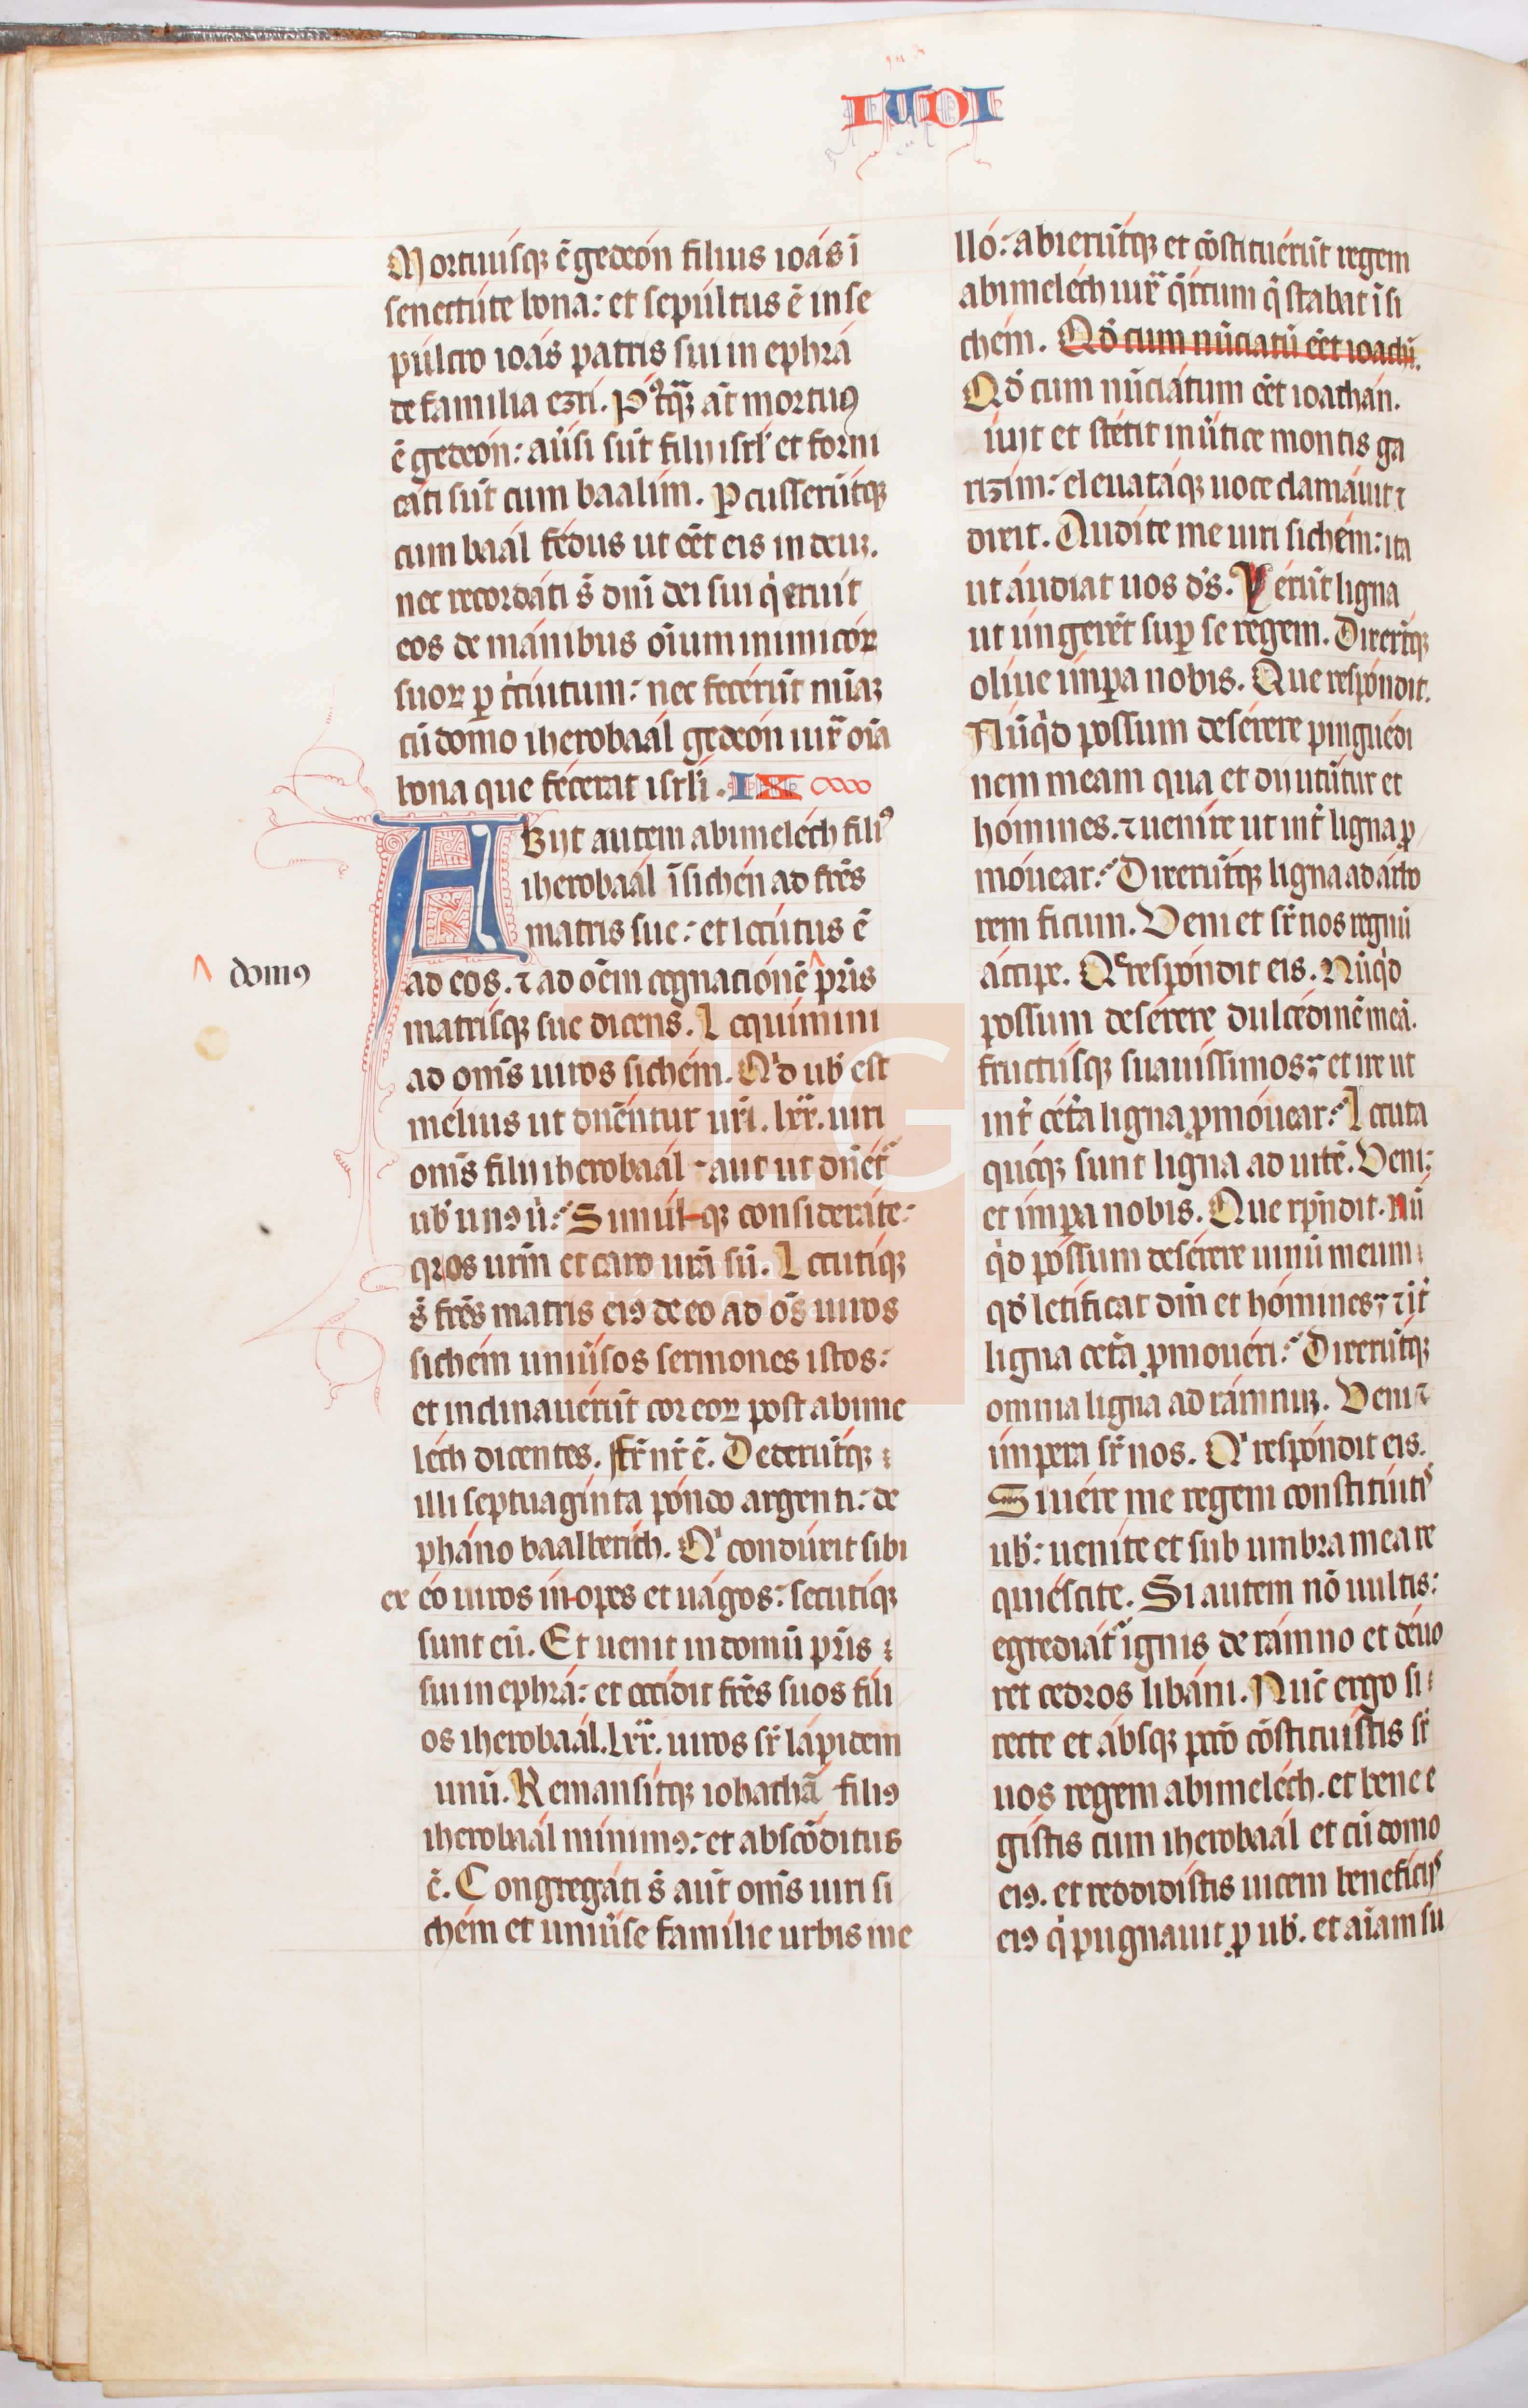 IUDI
Mortuusq; ē gedeón filius ioás ī
senectúte bona: et sepúltus ē in se
púlcro ioás patris sui in ephrá
de familia ezri. Pꝰtqᷓ aūt mortuꝰ
ē gedeón: aūsi sūt filii isrl̄ et forni
cáti sūt cum baalím. ꝑcusserūtq;
cum baál fédus ut eēt eis in deuꝫ.
nec recordáti s̄ dn̄i dei sui q̇ eruit
eos de mánibus oīum inimicóꝝ
suoꝝ ꝑ cͥcuitum: nec fecérūt mīaꝫ
cū domo iherobaál gedeón iuxͣ oīa
bona que fécerat isrl̄i. IX
Abiit autem abimeléch filiꝰ
iherobaál ī sichén ad fr̄és
matris sue: et locútus ē
ad eos. ⁊ ad oēm cognationē pr̄is
domꝰ
matrisq; sue dicens. Loquimini
ad om̄s uiros sichém. Qͥd ub̄ est
mélius ut dn̄éntur ur̄i. lxx. uiri
om̄s filii iherobaál aut ut dn̄et᷑
ub̄ unꝰ ū. Simul q; consideráte:
qꝛ os ur̄m et caro ur̄a sū. Locutiq;
s̄ fr̄és matris eiꝰ de eo ad oēs uiros
sichém uniūsos sermones istos:
et inclinauérūt cor eoꝝ post abime
léch dicentes. Fr̄ nr̄ ē. Dederūtq;
illi septuagínta póndo argenti: de
pháno baalberíth. Qͥ condúxit sibi
ex eo uiros in opes et uágos: secutiq;
sunt eū. Et uenit in domū pr̄is
sui in ephrá: et occídit fr̄és suos fili
os iherobaál. lxx. uiros sr̄ lápidem
unū. Remansitq; iohathā filiꝰ
iherobaál mínimꝰ: et abscōditus
ē. Congregáti s̄ aūt om̄s uiri si
chém et uniūse familie urbis me
lló: abierūtq; et cōstituérūt regem
abimeléch iuxͣ q̄rcum q̄ stabat ī si
chém. Qd̄ cum nūciatū eēt ioathā.
Qd̄ cum nūciátum eēt ioathan.
iuit et stetit in ūtice montis ga
rizím: eleuatáq; uoce clamáuit ⁊
dixit. Audíte me uiri sichém: ita
ut áudiat uos d̄s. Yérūt ligna
ut úngerēt suꝑ se regem. Dixerūtq;
olíue ímꝑa nobis. Que respóndit.
Nūq̇d possum desérere pinguédi
nem meam qua et dii utūtur et
hómines. ⁊ ueníre ut int̄ ligna ꝓ
móuear: Dixerūtq; ligna ad árbo
rem ficum. Veni et sr̄ nos regnū
áccipe. Qᷓ respóndit eis. Nūq̇d
possum desérere dulcédinē meā.
fructúsq; suauíssimos: et ire ut
int̄ cét̄a ligna ꝓmóuear: Locuta
quoq; sunt ligna ad uitē. Veni:
et ímꝑa nobis. Que rn̄dit. Nū
q̇d póssum desérere uinū meum:
qd̄ letíficat dm̄ et hómines: ⁊ int̄
ligna cet̄a ꝓmouéri: Dixerūtq;
omnia ligna ad rámnuꝫ. Veni ⁊
ímpera sr̄ nos. Qͥ respóndit eis.
Si uére me regem constitúitis
ub̄: uenite et sub umbra mea re
quiéscite. Si autem nō uultis:
egrediat᷑ ignis de rámno et déuo
ret cedros libáni. Nūc ergo si
recte et ábsq; pcc̄o cōstituistis sr̄
uos regem abimeléch. et bene e
gístis cum iherobaál et cū domo
eiꝰ. et reddidístis uicem beneficiis
eiꝰ q̇ pugnauit ꝓ ub̄. et aīam su